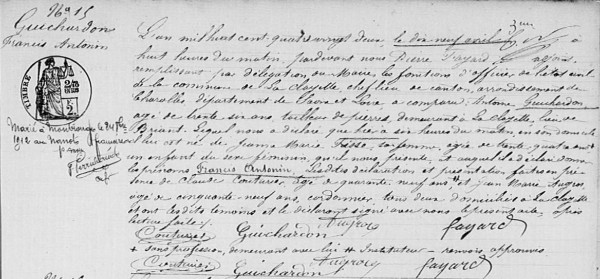 No 15
Guichardon
Francis Antonin
TIMBRE
Marié à Montceau le 24 7bre
1912 au Nanot
L'an mil huit cent quatre vingt deux le dix neuf avril à
huit heures du matin, pardevant nous Pierre Fayard, adjoint,
remplissant par délégation du Maire, les fonctions d'officier de l'état civil
de la commune de La Clayette, chef lieu de canton, arrondissement de
Charolles, département de Saône et Loire, a comparu, Antoine Guichardon
agé de trente six ans, tailleur de pierres, demeurant à La Clayette, lieu de
Briant. Lequel nous a déclaré que hier à six heures du matin, en son domicile
est né de Jeanne Marie sa femme, agée de trente quatre ans
un enfant du sexe féminin, qu'il nous présente, et auquel il a déclaré donner
les prénoms Francis Antonin. Lesdites déclaration et présentation faites en pré-
sence de Claude Couturier, agé de quarante neuf ans, et Jean Marie Augros,
agé de cinquante neuf ans, cordonnier, tous deux domiciliés à La Clayette
et ont lesdits témoins et le déclarant signé avec nous le présent acte, après
lecture faite.
Couturier Guichardon Augros Fayard
+ sans profession, demeurant avec lui # Instituteur - renvois approuvés
Couturier Guichardon Augros Fayard